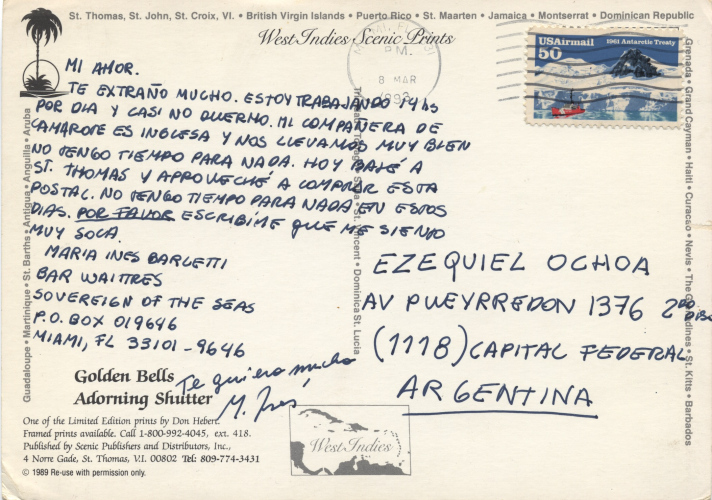 St. Thomas, St. John, St. Croix, VI. • British Virgin Islands • Puerto Rico • St. Maarten • Jamaica • Montserrat • Dominican Republic
West Indies Scenic Prints
P.M.
8 MAR
USAirmail
50
1961 Antarctic Treaty
MI AMOR.
TE EXTRAÑO MUCHO. ESTOY TRABAJANDO 14 hs
POR DIA Y CASI NO DUERMO. MI COMPAÑERA DE
CAMAROTE ES INGLESA Y NOS LLEVAMOS MUY BIEN
NO TENGO TIEMPO PARA NADA. HOY BAJÉ A
ST. THOMAS Y APROVECHÉ A COMPRAR ESTA
POSTAL. NO TENGO TIEMPO PARA NADA EN ESTOS
DIAS. POR FAVOR ESCRIBIME QUE ME SIENTO
MUY SOLA.
MARIA INES BARLETTI
BAR WAITTRES
SOVEREIGN OF THE SEAS
P.O. BOX 019646
MIAMI, FL 33101-9646
Te quiero mucho
M. Inés
EZEQUIEL OCHOA
AV PUEYRREDON 1376 2DO
(1118) CAPITAL FEDERAL
ARGENTINA
Golden Bells
Adorning Shutter
One of the Limited Edition prints by Don Hebert.
Framed prints available. Call 1-800-992-4045, ext. 418.
Published by Scenic Publishers and Distributors, Inc.,
4 Norre Gade, St. Thomas, V.I. 00802 Tel: 809-774-3431
© 1989 Re-use with permission only.
West Indies
Guadaloupe • Martinique • St. Barths • Antigua • Anguilla • Aruba
St. Vincent • Dominica St. Lucia
Grenada • Grand Cayman • Haiti • Curacao • Nevis • The Grenadines • St. Kitts • Barbados